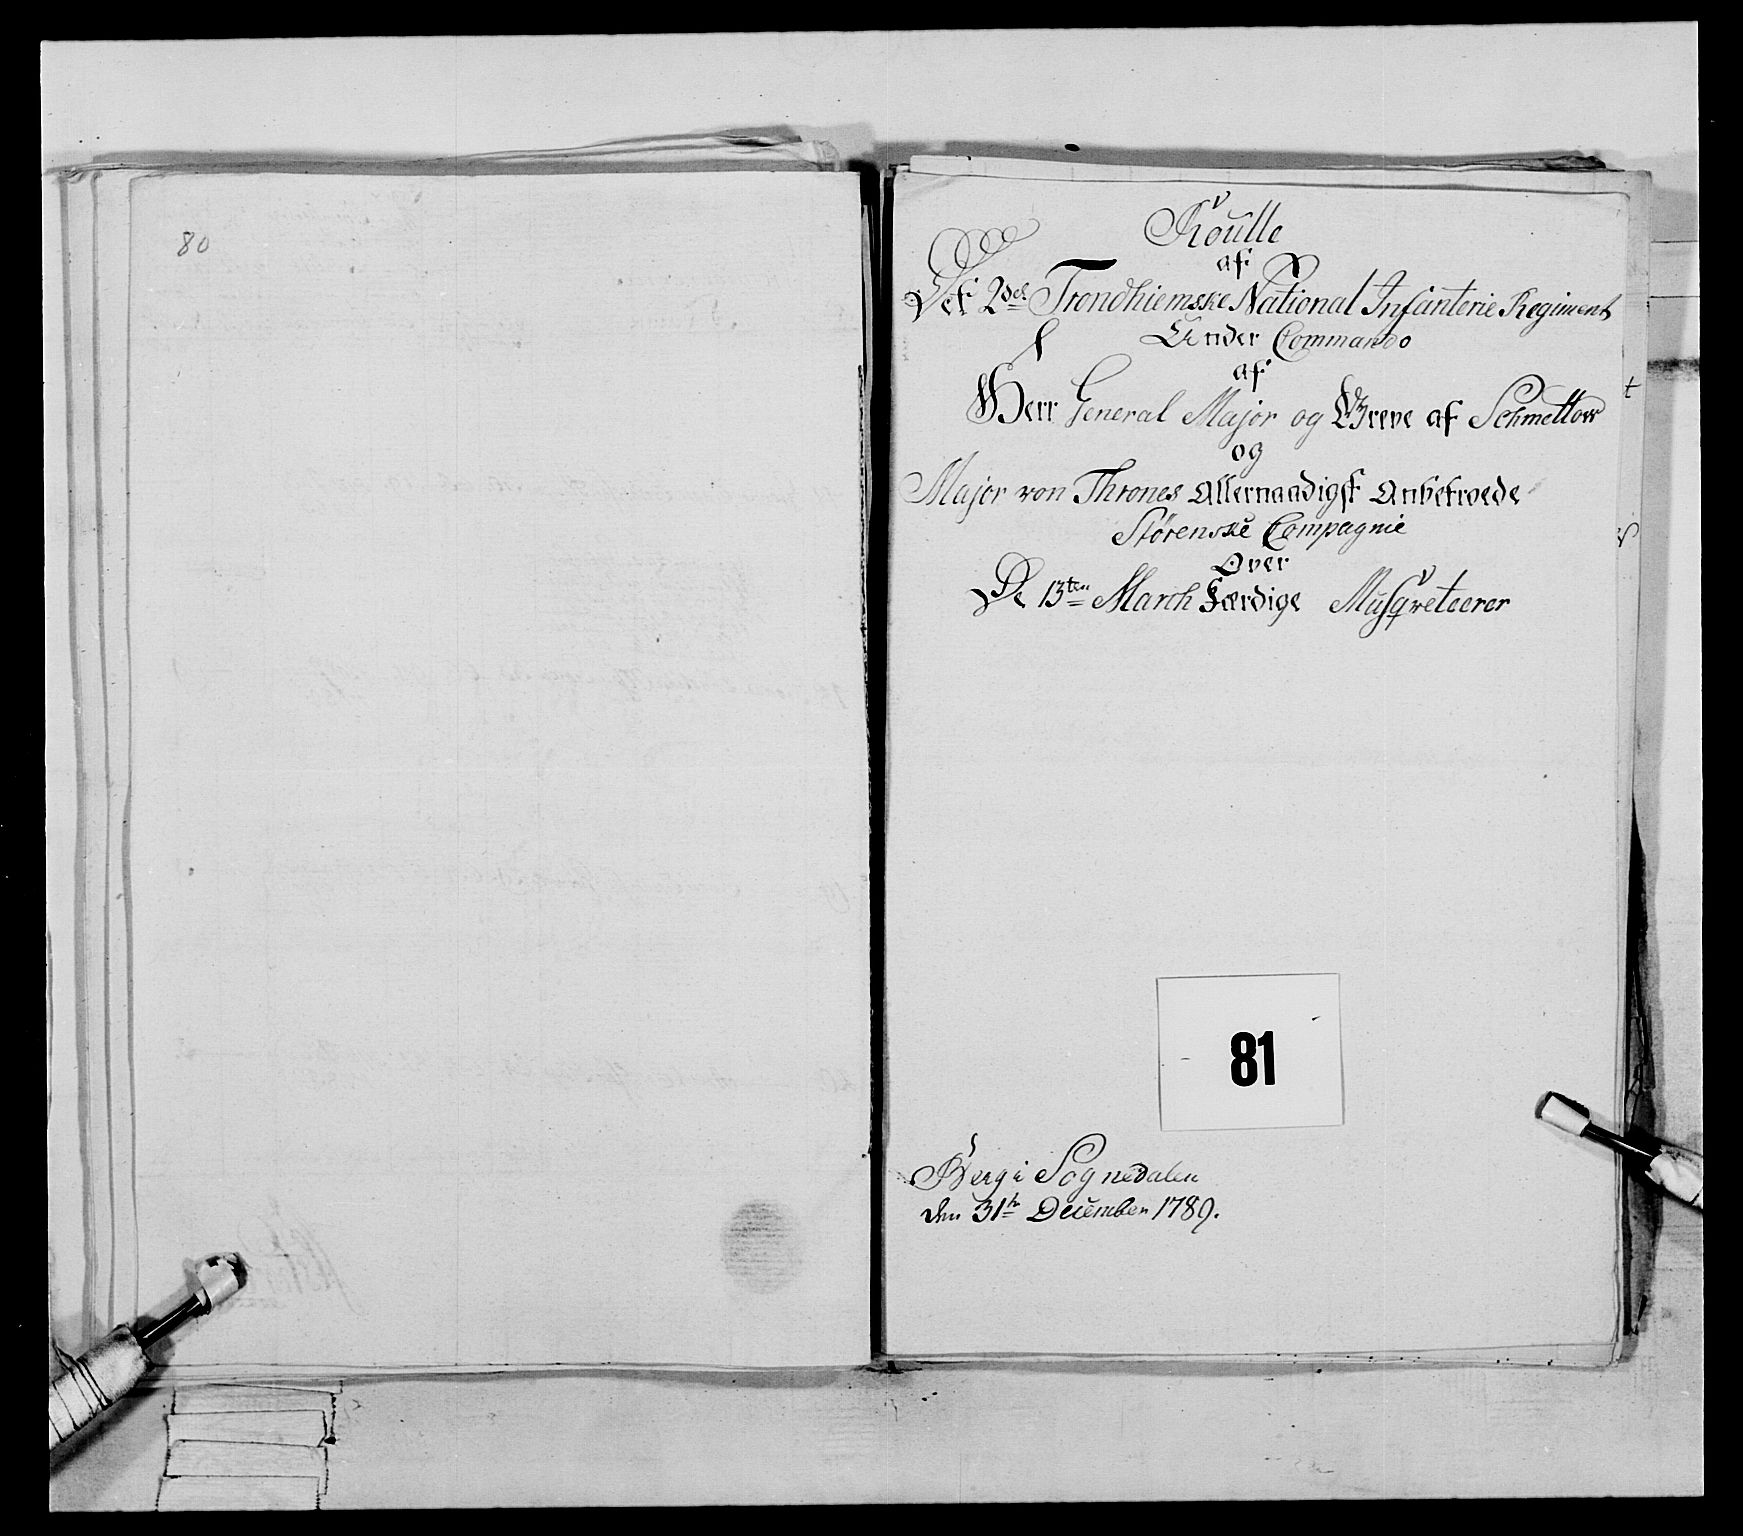 80
Roulle
af
Det 2det Trondhiemske National Infanterie Regiment
Under Commando
af
Herr General Major og Greve af Schmettow
og
Major von Thrones Allernaadigst Anbetroede
Størenske Compagnie
Over
De 13ten March Færdige Musqveteerer
81
Berg i Sognedalen
den 31te December 1789.